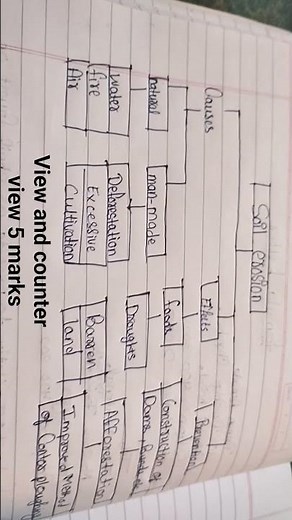 Soil erosion
Causes
Effects
Prevention
natural
man-made
floods
Construction of
Dams,
Water
Deforestation
Droughts
Afforestation
fire
Excessive
Barren
Improved Method
Air
Cultivation
land
of Contor ploughing
View and counter
view 5 marks